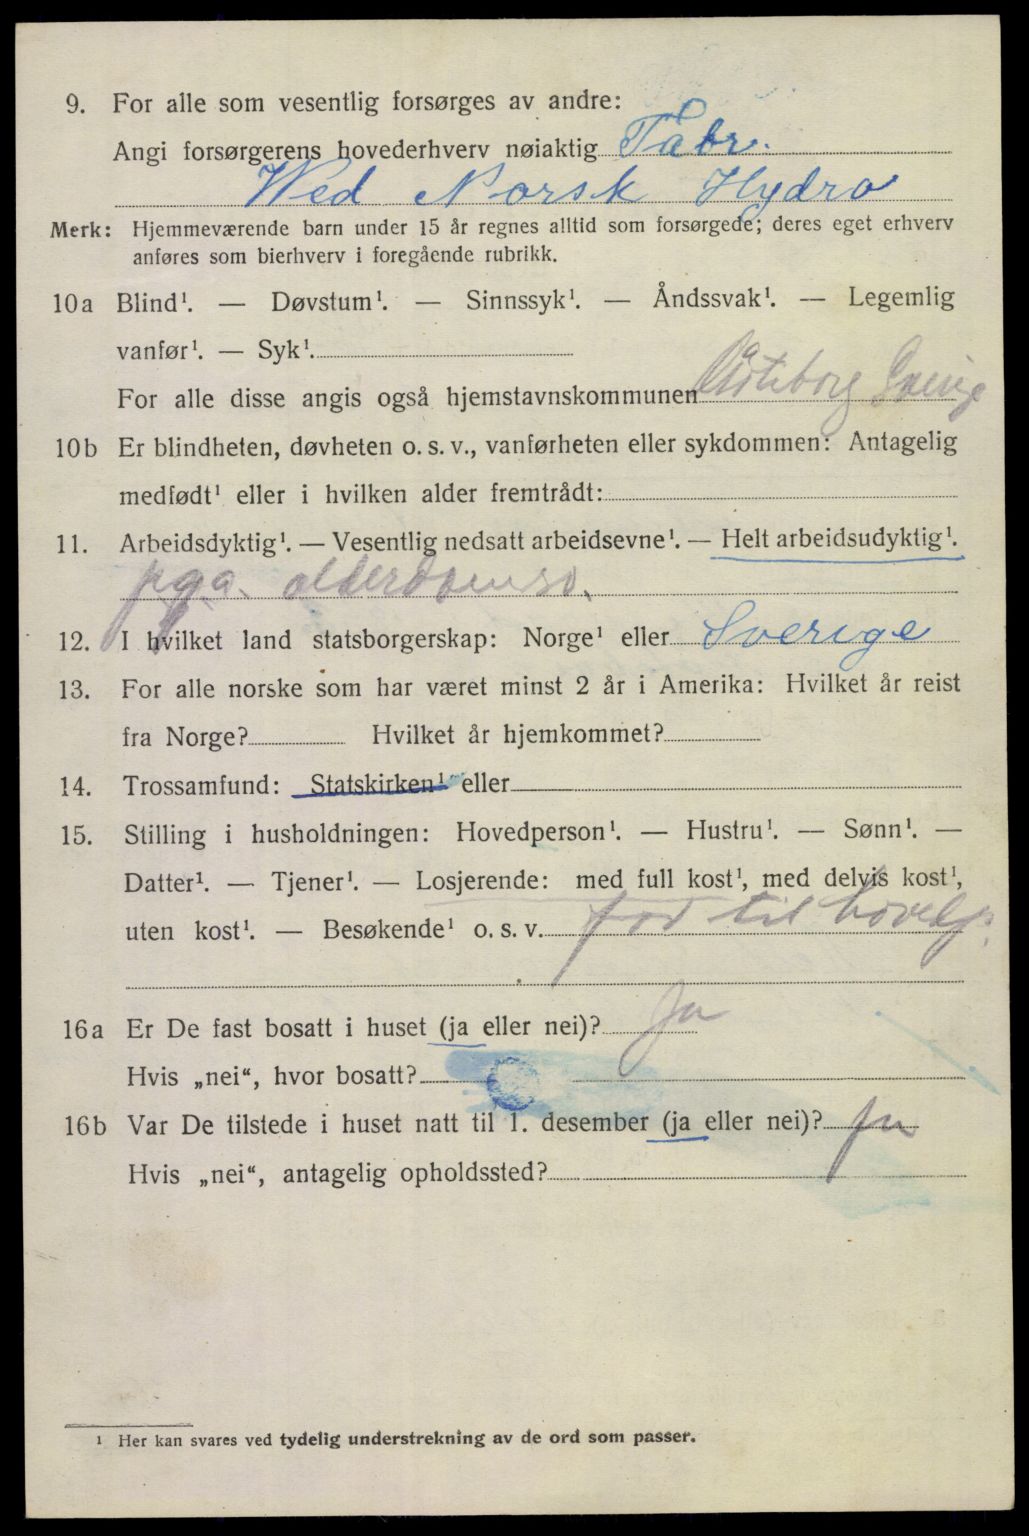 9. For alle som vesentlig forsørges av andre:
Angi forsørgerens hovederhverv nøiaktig Fabr.
Wed Norsk Hydro
Merk: Hjemmeværende barn under 15 år regnes alltid som forsørgede; deres eget erhverv
anføres som bierhverv i foregående rubrikk.
10a Blind¹. — Døvstum¹. — Sinnssyk¹. — Åndssvak¹. — Legemlig
vanfør¹. — Syk¹.
For alle disse angis også hjemstavnskommunen Gøteborg Sverige
10b Er blindheten, døvheten o. s. v., vanførheten eller sykdommen: Antagelig
medfødt¹ eller i hvilken alder fremtrådt:
11. Arbeidsdyktig¹. — Vesentlig nedsatt arbeidsevne¹. — Helt arbeidsudyktig¹.
pga. alderdom
12. I hvilket land statsborgerskap: Norge¹ eller Sverige
13. For alle norske som har været minst 2 år i Amerika: Hvilket år reist
fra Norge? Hvilket år hjemkommet?
14. Trossamfund: Statskirken¹ eller
15. Stilling i husholdningen: Hovedperson¹. — Hustru¹. — Sønn¹. —
Datter¹. — Tjener¹. — Losjerende: med full kost¹, med delvis kost¹,
uten kost¹. — Besøkende¹ o. s. v. til hovedp.
16a Er De fast bosatt i huset (ja eller nei)? Ja
Hvis „nei“, hvor bosatt?
16b Var De tilstede i huset natt til 1. desember (ja eller nei)? Ja
Hvis „nei“, antagelig opholdssted?
¹ Her kan svares ved tydelig understrekning av de ord som passer.